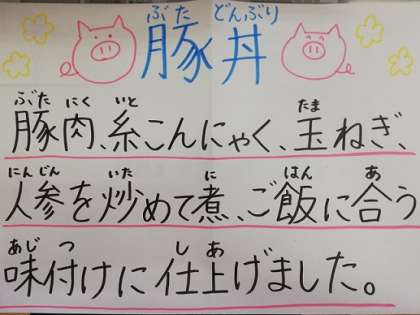 ぶた どんぶり
豚丼
ぶた にく いと たま
豚肉、糸こんにゃく、玉ねぎ、
にんじん いた に はん あ
人参を炒めて煮、ご飯に合う
あじ つ し あ
味付けに仕上げました。